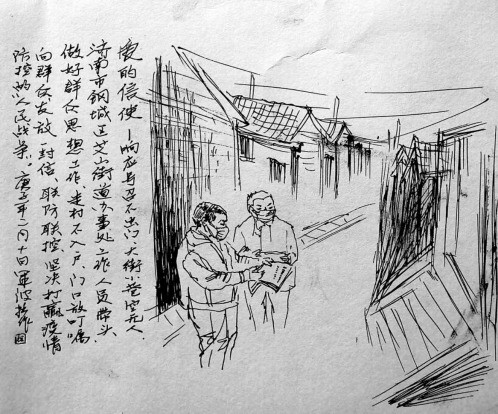 爱的信使—响应号召不出门、大街小巷空无人.
济南市钢城区艾山街道办事处工作人员带头、
做好群众思想工作、走村不入户、门口放叮嘱
向群众发放一封信、联防联控、坚决打赢疫情
防控的人民战「」。庚子年二月十日